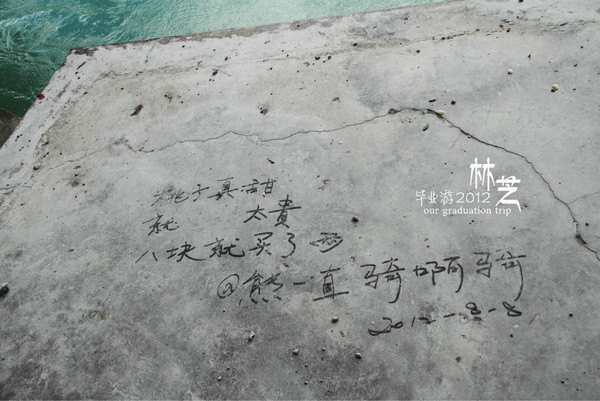 桃子真甜
就 太貴
八块就买了两
@熊一直骑啊骑
2012-8-8
林芝
毕业游2012
our graduation trip